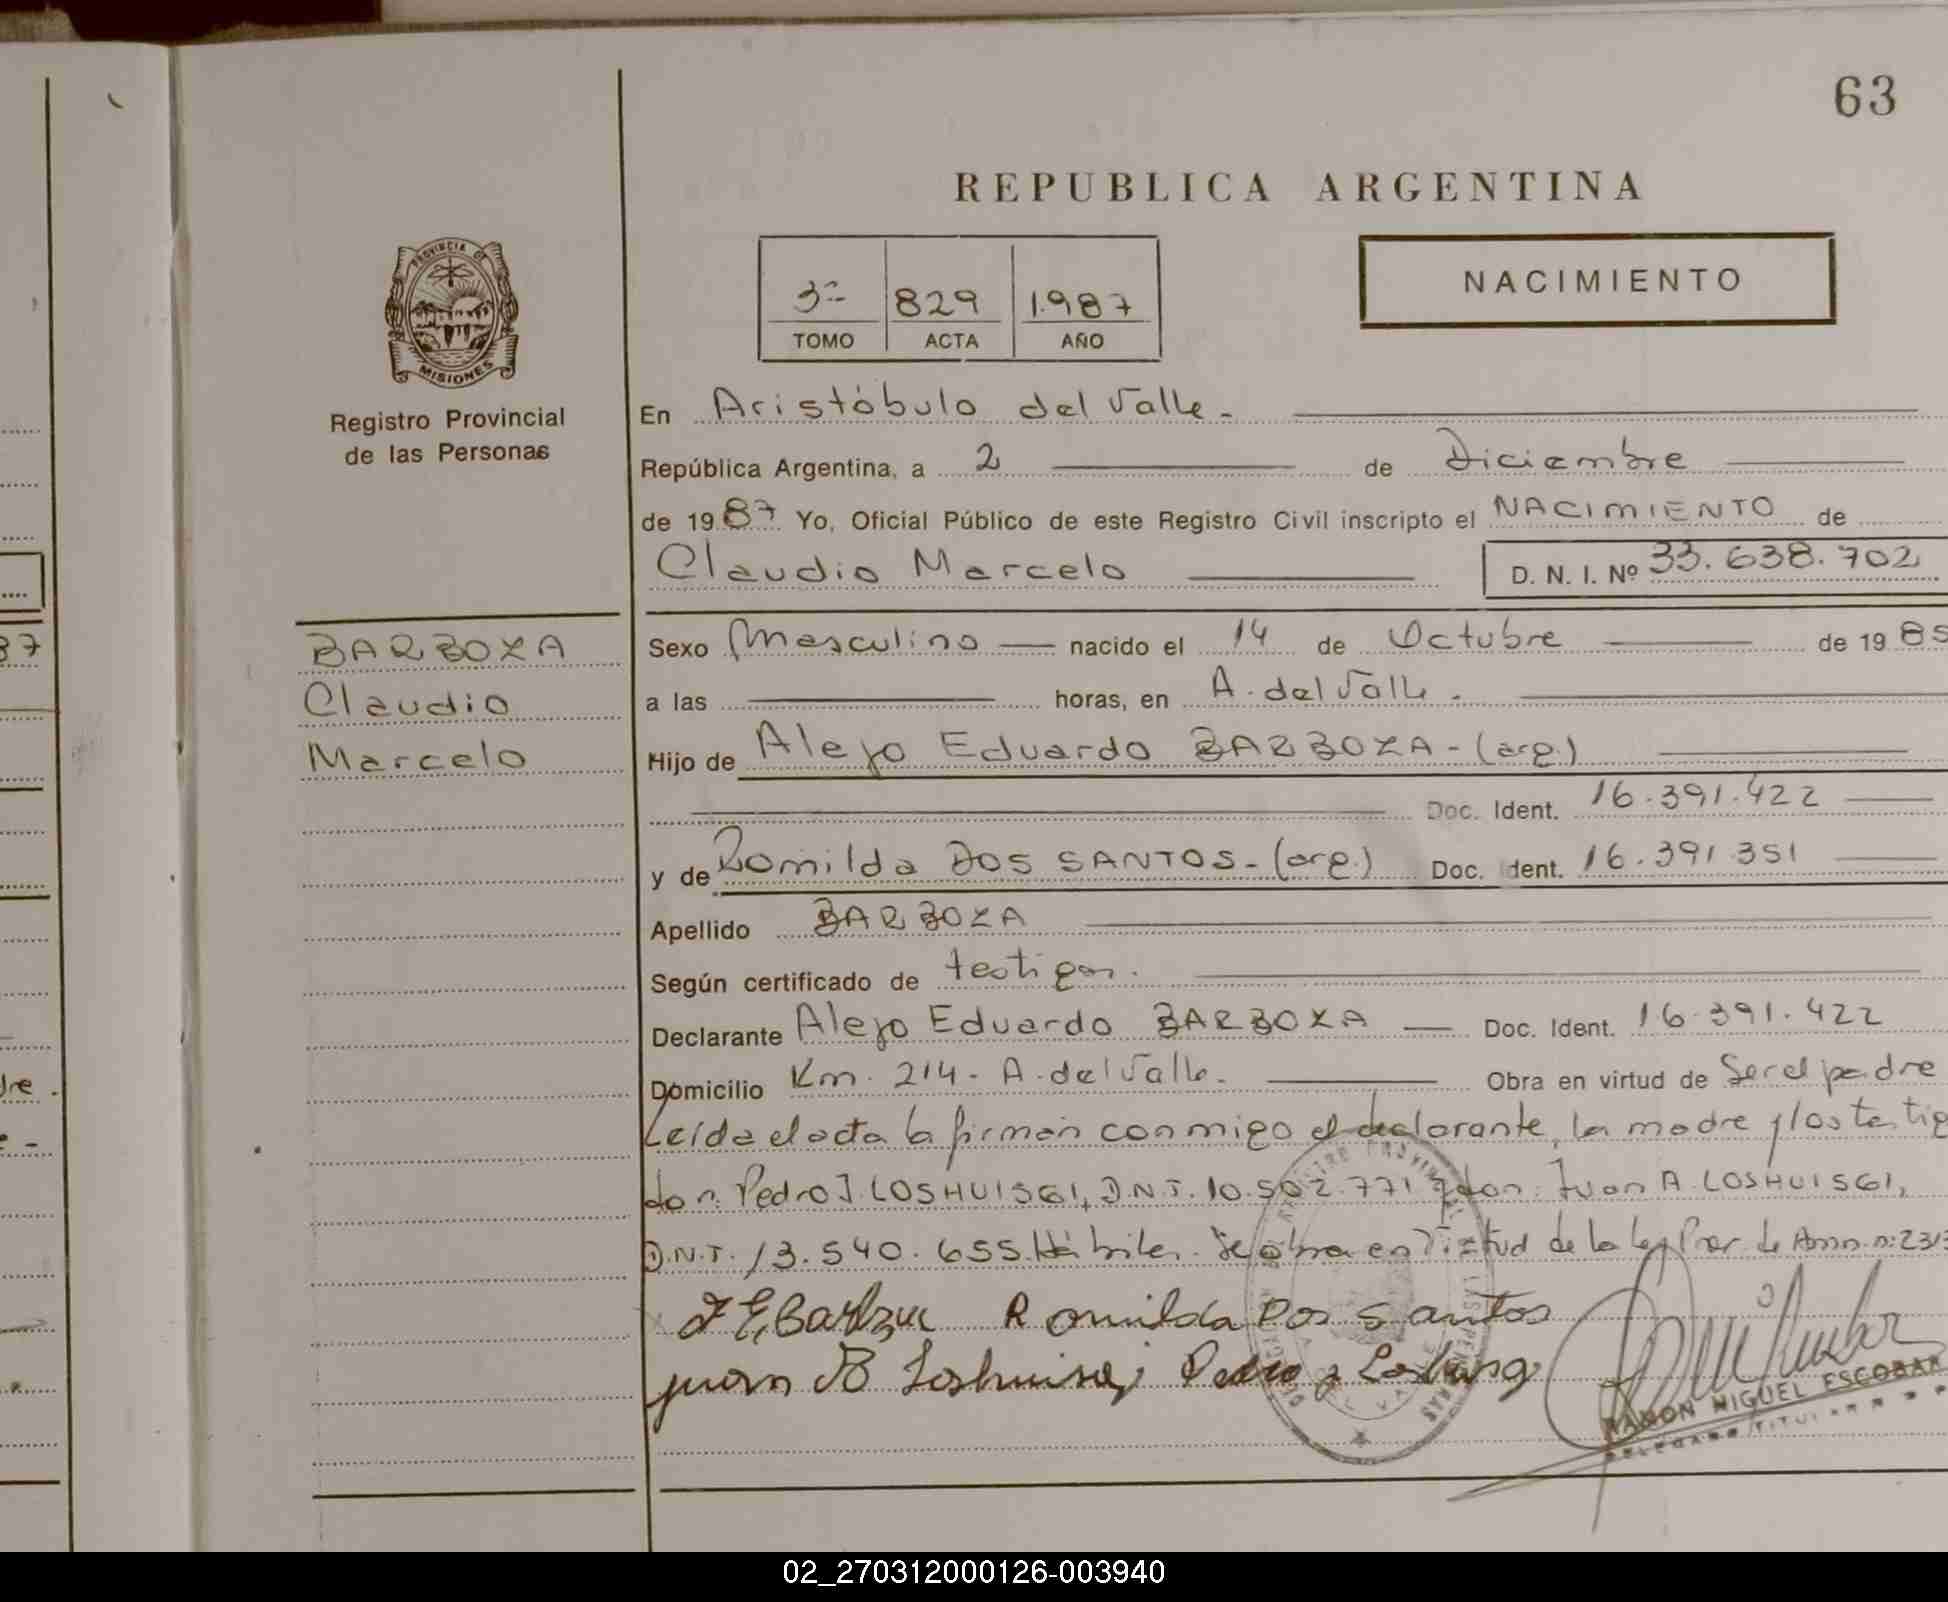 63
REPUBLICA ARGENTINA
NACIMIENTO
3º 829 1.987
TOMO ACTA AÑO
PROVINCIA DE
MISIONES
Registro Provincial
de las Personas
En Aristóbulo del Valle.
República Argentina, a 2 de Diciembre
de 1987 Yo, Oficial Público de este Registro Civil inscripto el NACIMIENTO de
Claudio Marcelo D. N. I. Nº 33.638.702
BARBOZA
Claudio
Marcelo
Sexo Masculino nacido el 14 de Octubre de 1985
a las horas, en A. del Valle.
Hijo de Alejo Eduardo BARBOZA - (arg.)
Doc. Ident. 16.391.422
y de Romilda DOS SANTOS - (arg.) Doc. Ident. 16.391.351
Apellido BARBOZA
Según certificado de testigos.
Declarante Alejo Eduardo BARBOZA Doc. Ident. 16.391.422
Domicilio Km. 214 - A. del Valle. Obra en virtud de Ser el padre
Leída el acta la firman conmigo el declarante, la madre y los testig
don: Pedro J. LOSHUISGI, D.N.I. 10.502.771 y don: Juan A. LOSHUISGI,
D.N.I. 13.540.655. Hábiles. Se obra en Virtud de la Ley Pror. de Amn. n: 2313
A E, Barboza Romilda Dos Santos
juan Pedro J
RAMON MIGUEL ESCOBAR
DELEGADO TITULAR
87
dre.
02_270312000126-003940